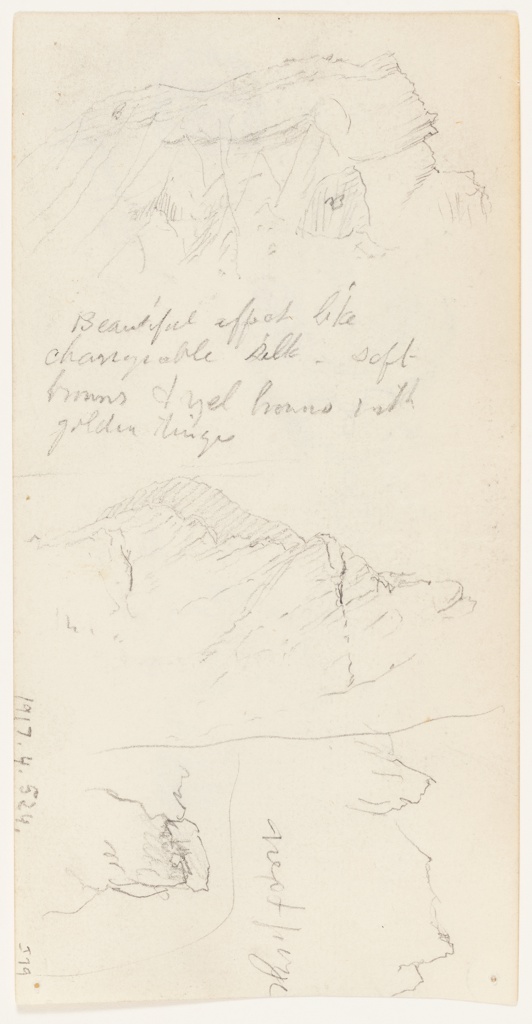 Beautiful effect like
changeable silk - soft
browns & yel browns with
golden tinge
1917.4.524.
next page